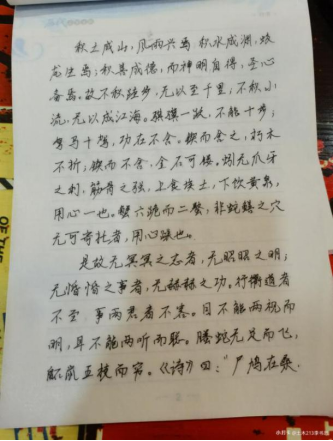 积土成山,风雨兴焉 积水成渊,蛟
龙生焉;积善成德,而神明自得,圣心
备焉。故不积跬步,无以至千里;不积小
流,无以成江海。骐骥一跃,不能十步;
驽马十驾,功在不舍。锲而舍之,朽木
不折;锲而不舍,金石可镂。蚓无爪牙
之利,筋骨之强,上食埃土,下饮黄泉,
用心一也。蟹六跪而二螯,非蛇鳝之穴
无可寄托者,用心躁也。
是故无冥冥之志者,无昭昭之明;
无惛惛之事者,无赫赫之功。行衢道者
不至 事两君者不容。目不能两视而
明,耳不能两听而聪。螣蛇无足而飞,
鼫鼠五技而穷。《诗》曰:“尸鸠在桑,